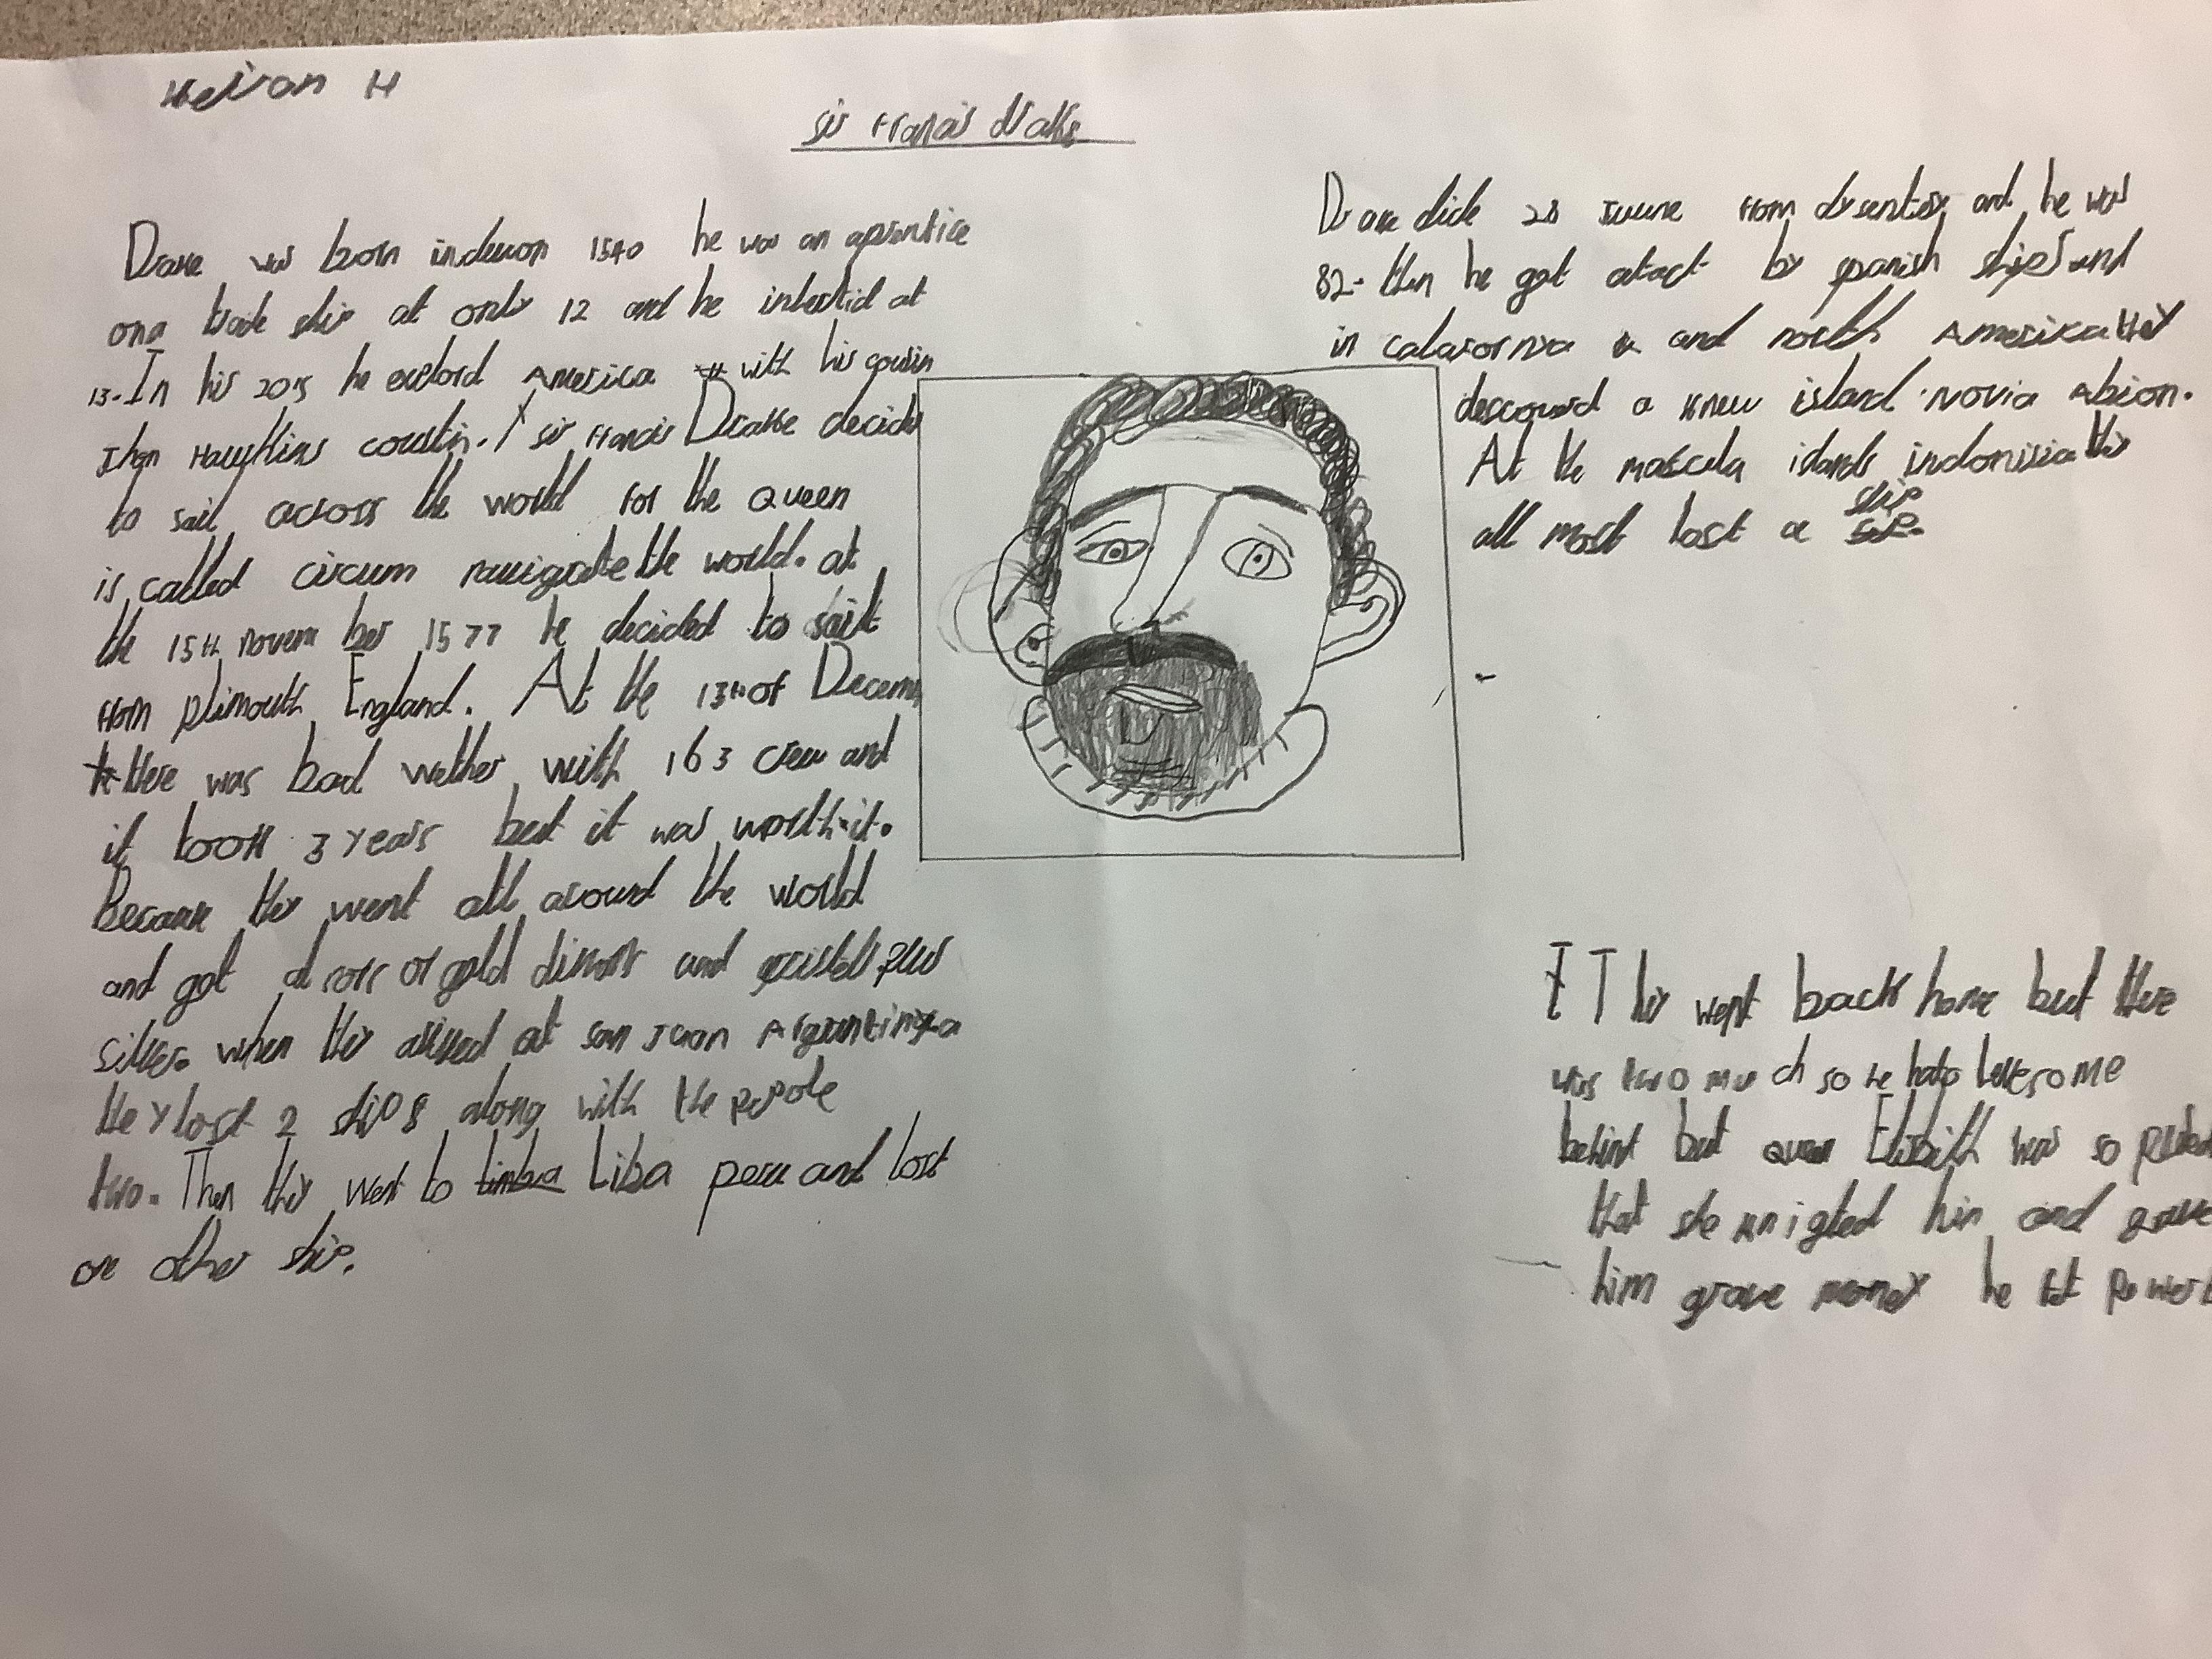 Keiran H
sir Francis drake
Drake was born indevon 1540 he was an aprentice
ona trade ship at only 12 and he inhertid at
13. In his 20s he exelord America with his cousin
Jhon Hawkins coustin. sir Francis Drake decide
to sail across the world for the queen
is called circum navigate the world. at
the 15th november 1577 he decided to sail
from plimouth England. At the 13th of Decem
there was bad wether with 163 crew and
it took 3 years but it was worth it.
Because they went all around the world
and got of gold dimons and plus
silver. when they arived at san Juan Argentina
they lost 2 ships along with the pepole
two. Then they went to limba Lisa peru and lost
one other ship.
Drake dide 28 from dysentery and he was
82. then he got atact by spanish ships and
in calafornya and north Amerika they
descoverd a knew island novia Abion.
At the moscula islands indonisia they
all most lost a ship
They went back home but there
was two much so he hato leve some
behind but queen Elisbith was so
that she knigted him and gave
him grave money he power